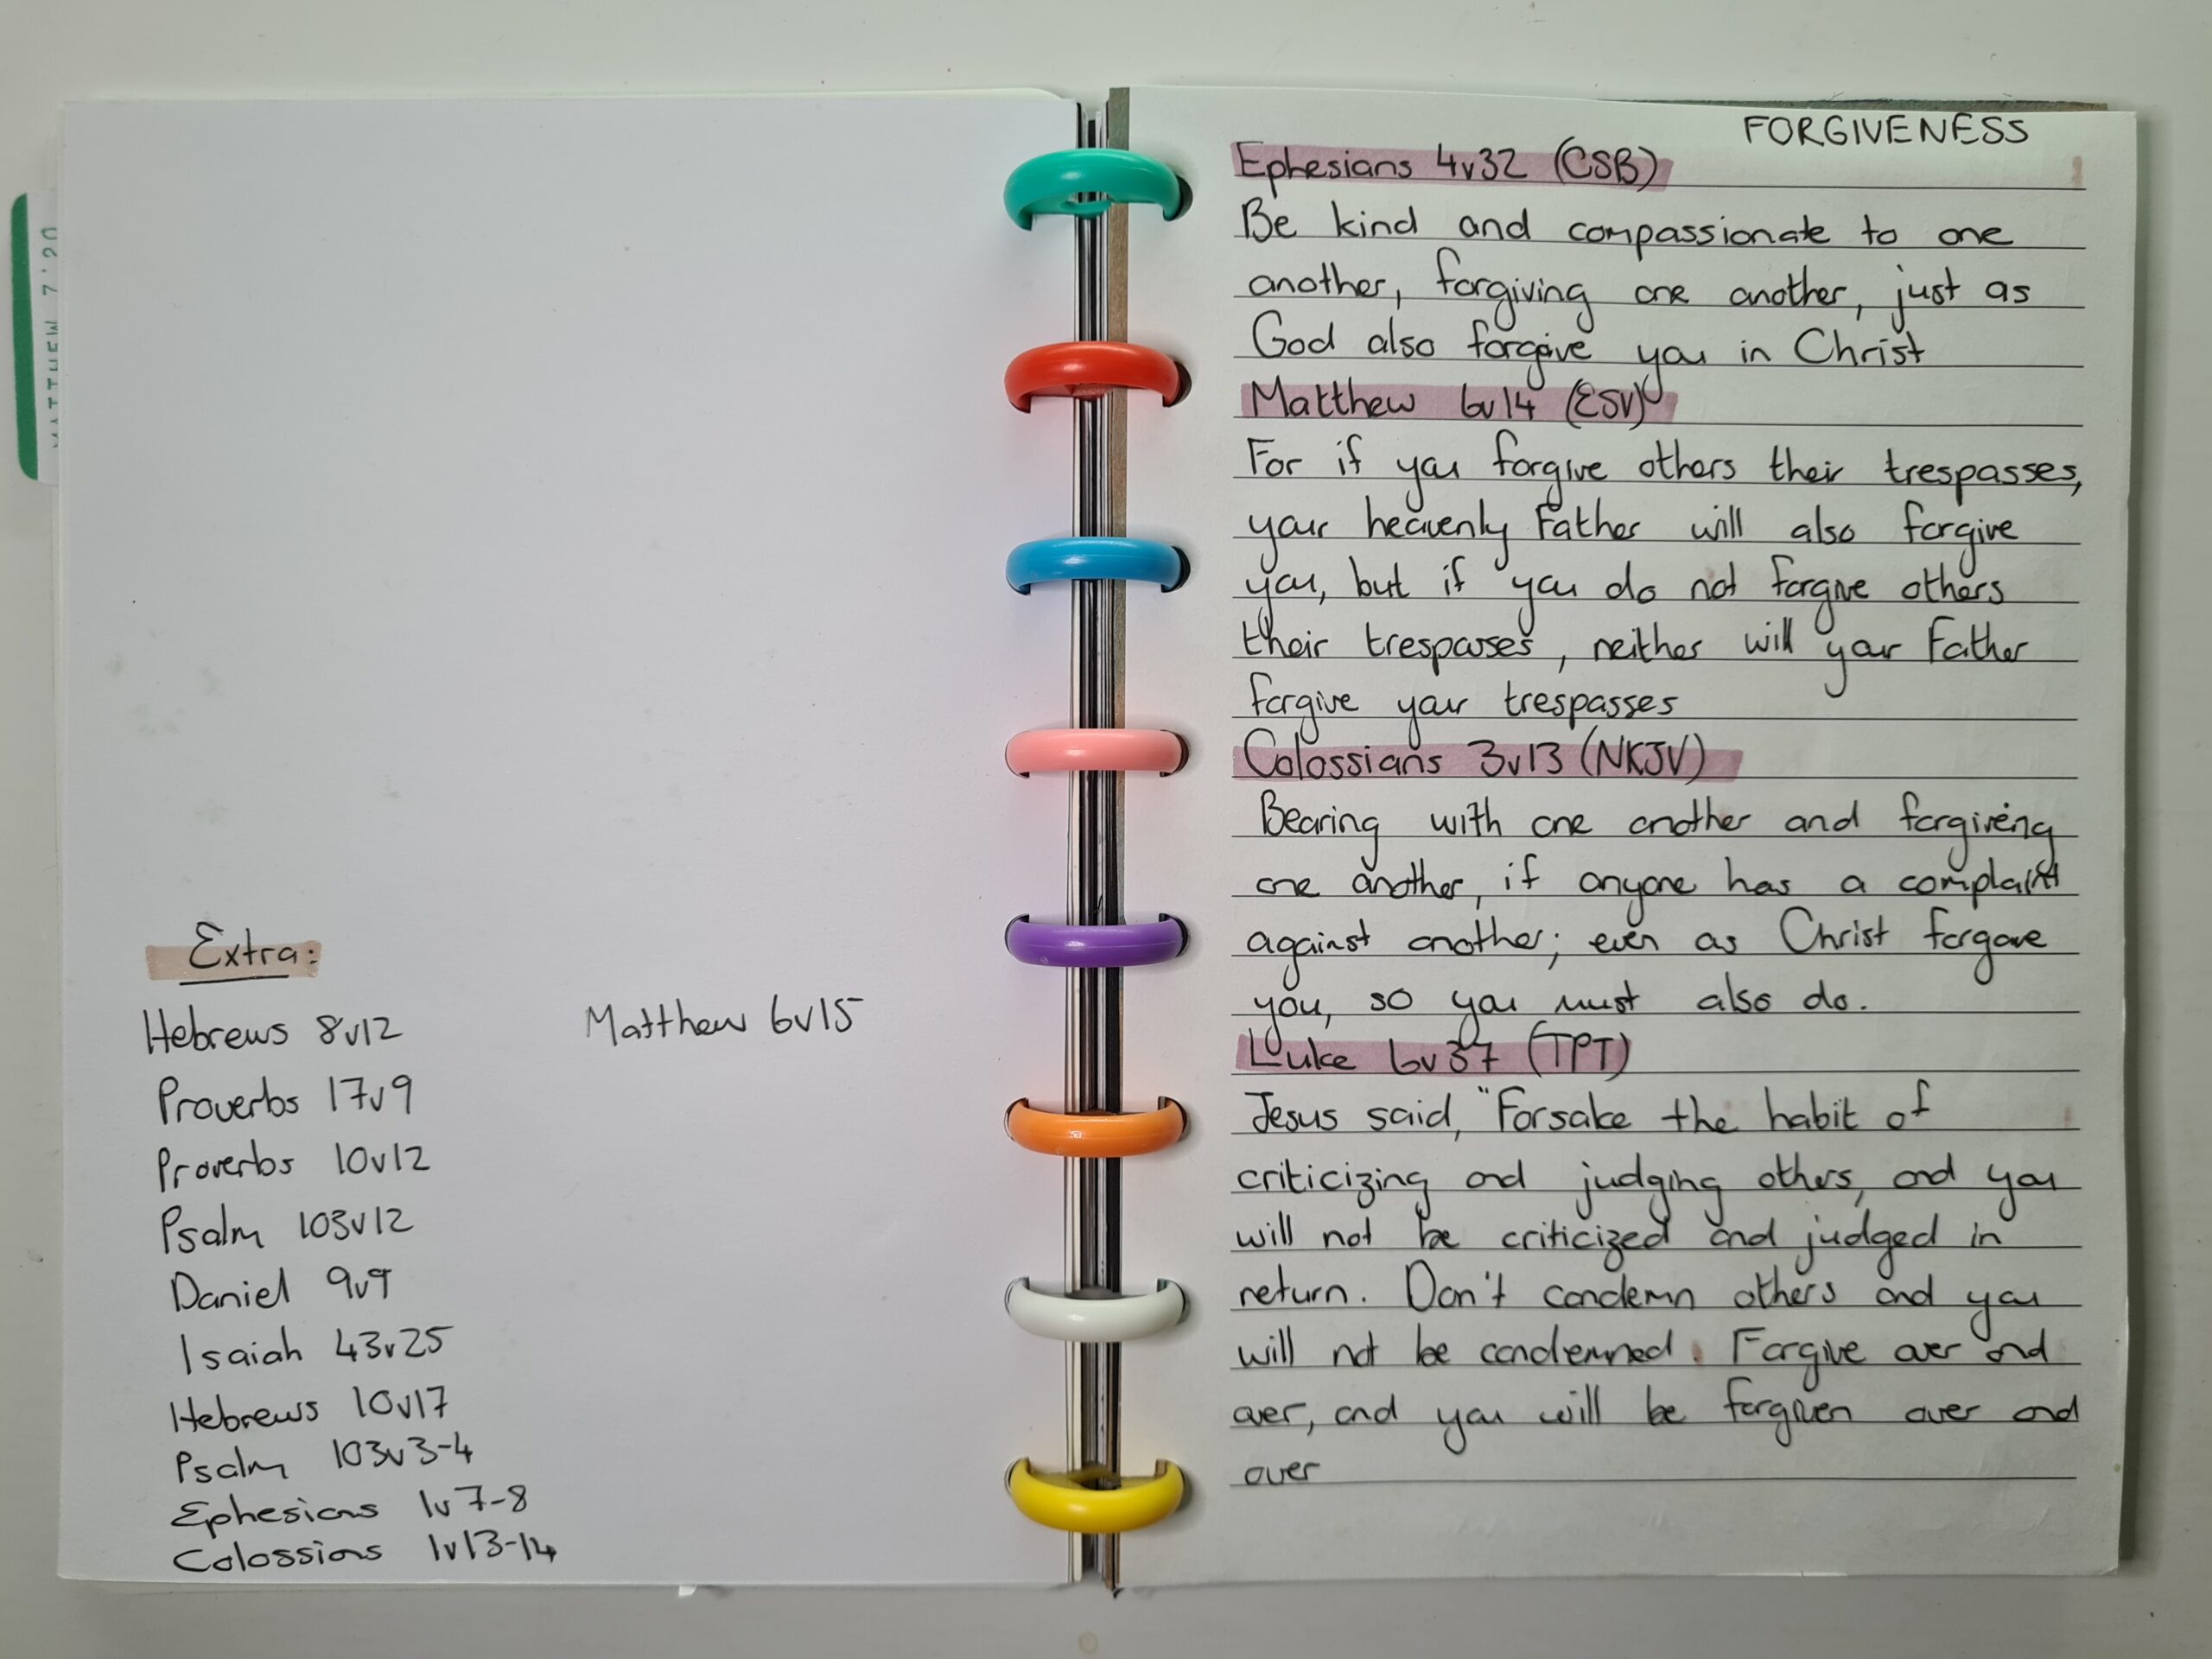 MATTHEW 7:20
Extra:
Hebrews 8v12
Proverbs 17v9
Proverbs 10v12
Psalm 103v12
Daniel 9v9
Isaiah 43v25
Hebrews 10v17
Psalm 103v3-4
Ephesians 1v7-8
Colossians 1v13-14
Matthew 6v15
FORGIVENESS
Ephesians 4v32 (CSB)
Be kind and compassionate to one
another, forgiving one another, just as
God also forgave you in Christ
Matthew 6v14 (ESV)
For if you forgive others their trespasses,
your heavenly Father will also forgive
you, but if you do not forgive others
their trespasses, neither will your Father
forgive your trespasses
Colossians 3v13 (NKJV)
Bearing with one another and forgiving
one another, if anyone has a complaint
against another; even as Christ forgave
you, so you must also do.
Luke 6v37 (TPT)
Jesus said, "Forsake the habit of
criticizing and judging others, and you
will not be criticized and judged in
return. Don't condemn others and you
will not be condemned. Forgive over and
over, and you will be forgiven over and
over